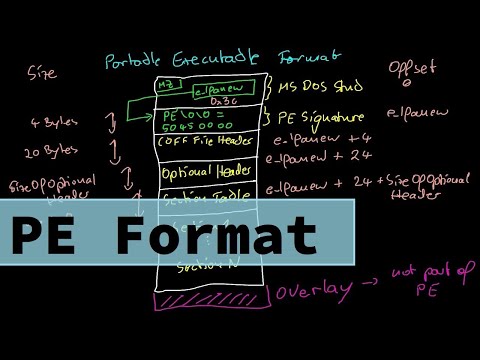 Portable Executable Format
Size
Offset
MZ
e_lfanew
0
0x3c
MS DOS Stub
4 Bytes
PE\0\0 =
50 45 00 00
PE Signature
e_lfanew
20 Bytes
COFF File Header
e_lfanew + 4
Optional Header
e_lfanew + 24
SizeOfOptional
Header
Section Table
e_lfanew + 24 + SizeOfOptional
Header
PE Format
Section N
Overlay → not part of
PE